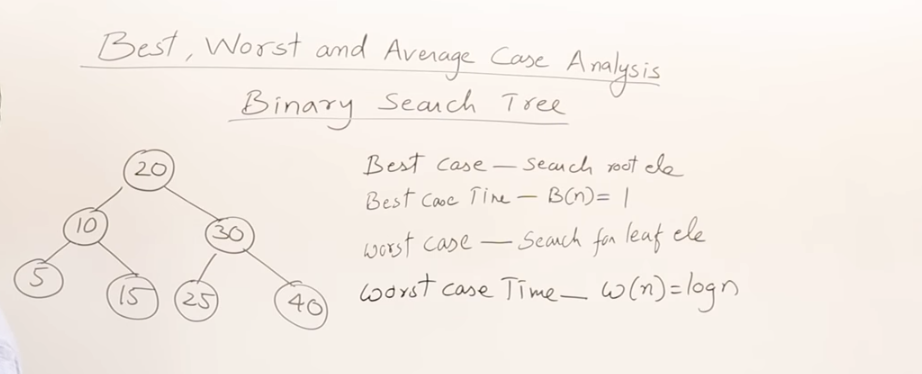 Best, Worst and Average Case Analysis
Binary Search Tree
20
10
30
5
15
25
40
Best case — search root ele
Best case Time — B(n) = 1
worst case — Search for leaf ele
worst case Time — w(n) = logn